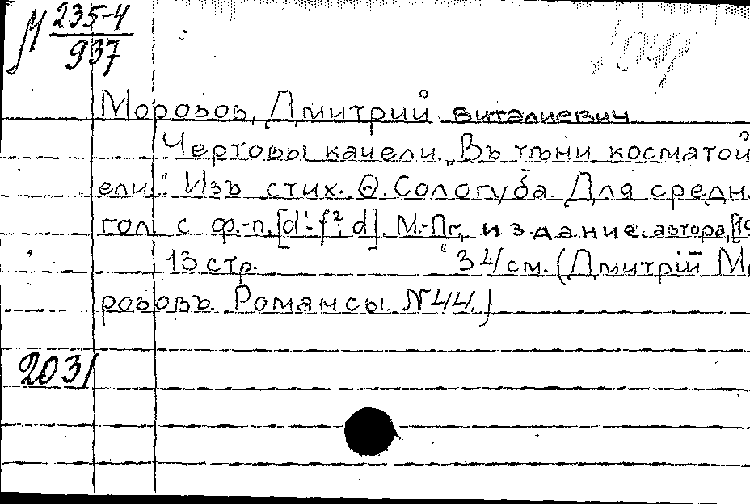 М 235-4
937
Морозов, Дмитрий Виталиевич
Чертовы качели. „Въ тѣни косматой
ели." Изъ стих. Ѳ. Сологуба Для средн.
гол. с ф.-п. [d¹-f²; d]. М.-Пг, издание автора, [19
13 стр. 34 см. (Дмитрій М
розовъ Романсы №44.)
2031